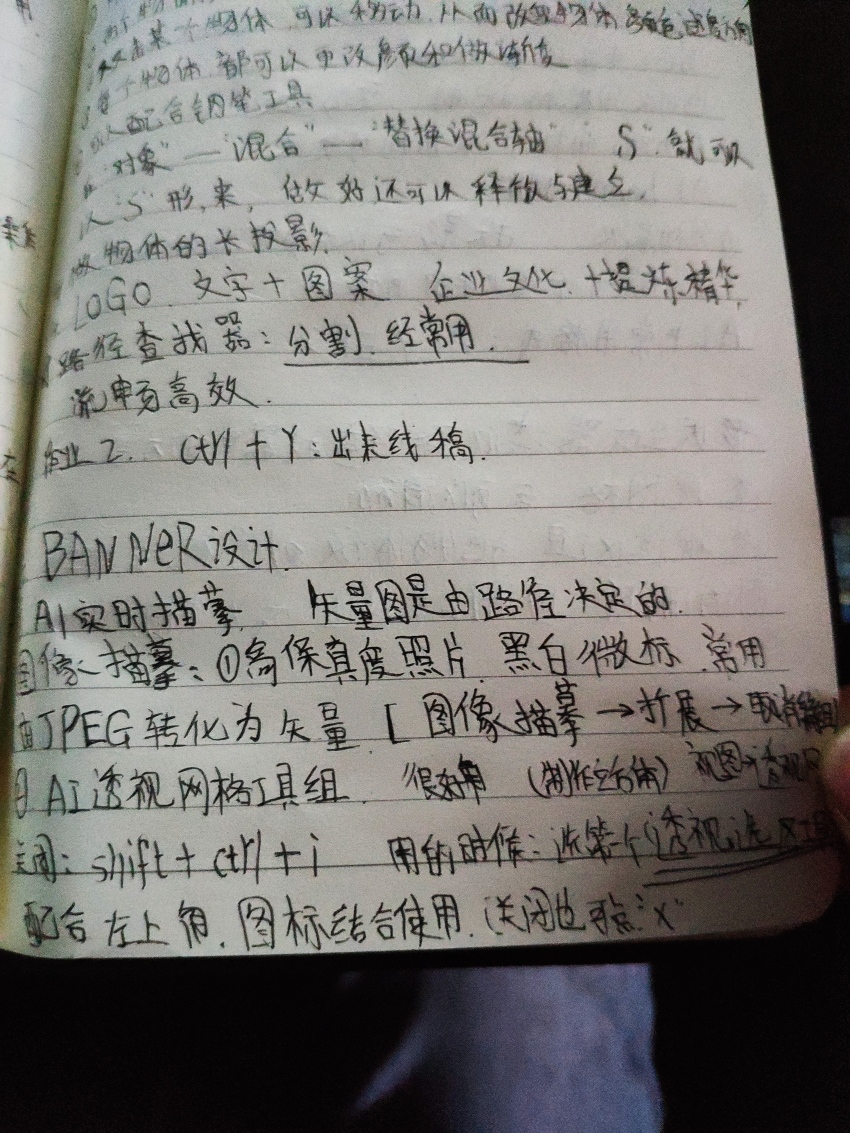 某个物体 可以移动 从而改变物体颜色速度方向
物体都可以更改颜色和做渐变
配合钢笔工具
"对象"—"混合"—"替换混合轴" "S" 就可以
以"S"形来, 做好还可以释放与建立.
做物体的长投影
LOGO. 文字+图案 企业文化.+提炼精华.
路径查找器: 分割. 经常用.
流畅高效.
作业2. Ctrl+Y:出来线稿.
BANNeR设计.
AI实时描摹. 矢量图是由路径决定的.
图像描摹: ①高保真度照片. 黑白微标 常用
由JPEG转化为矢量. [图像描摹→扩展→取消编组
AI透视网格工具组. 很有用 (制作立方体) 视图→透视网
关闭: shift+ctrl+i 用的时候: 选第一个(透视选区工具
配合左上角. 图标结合使用. (关闭也可点"x"